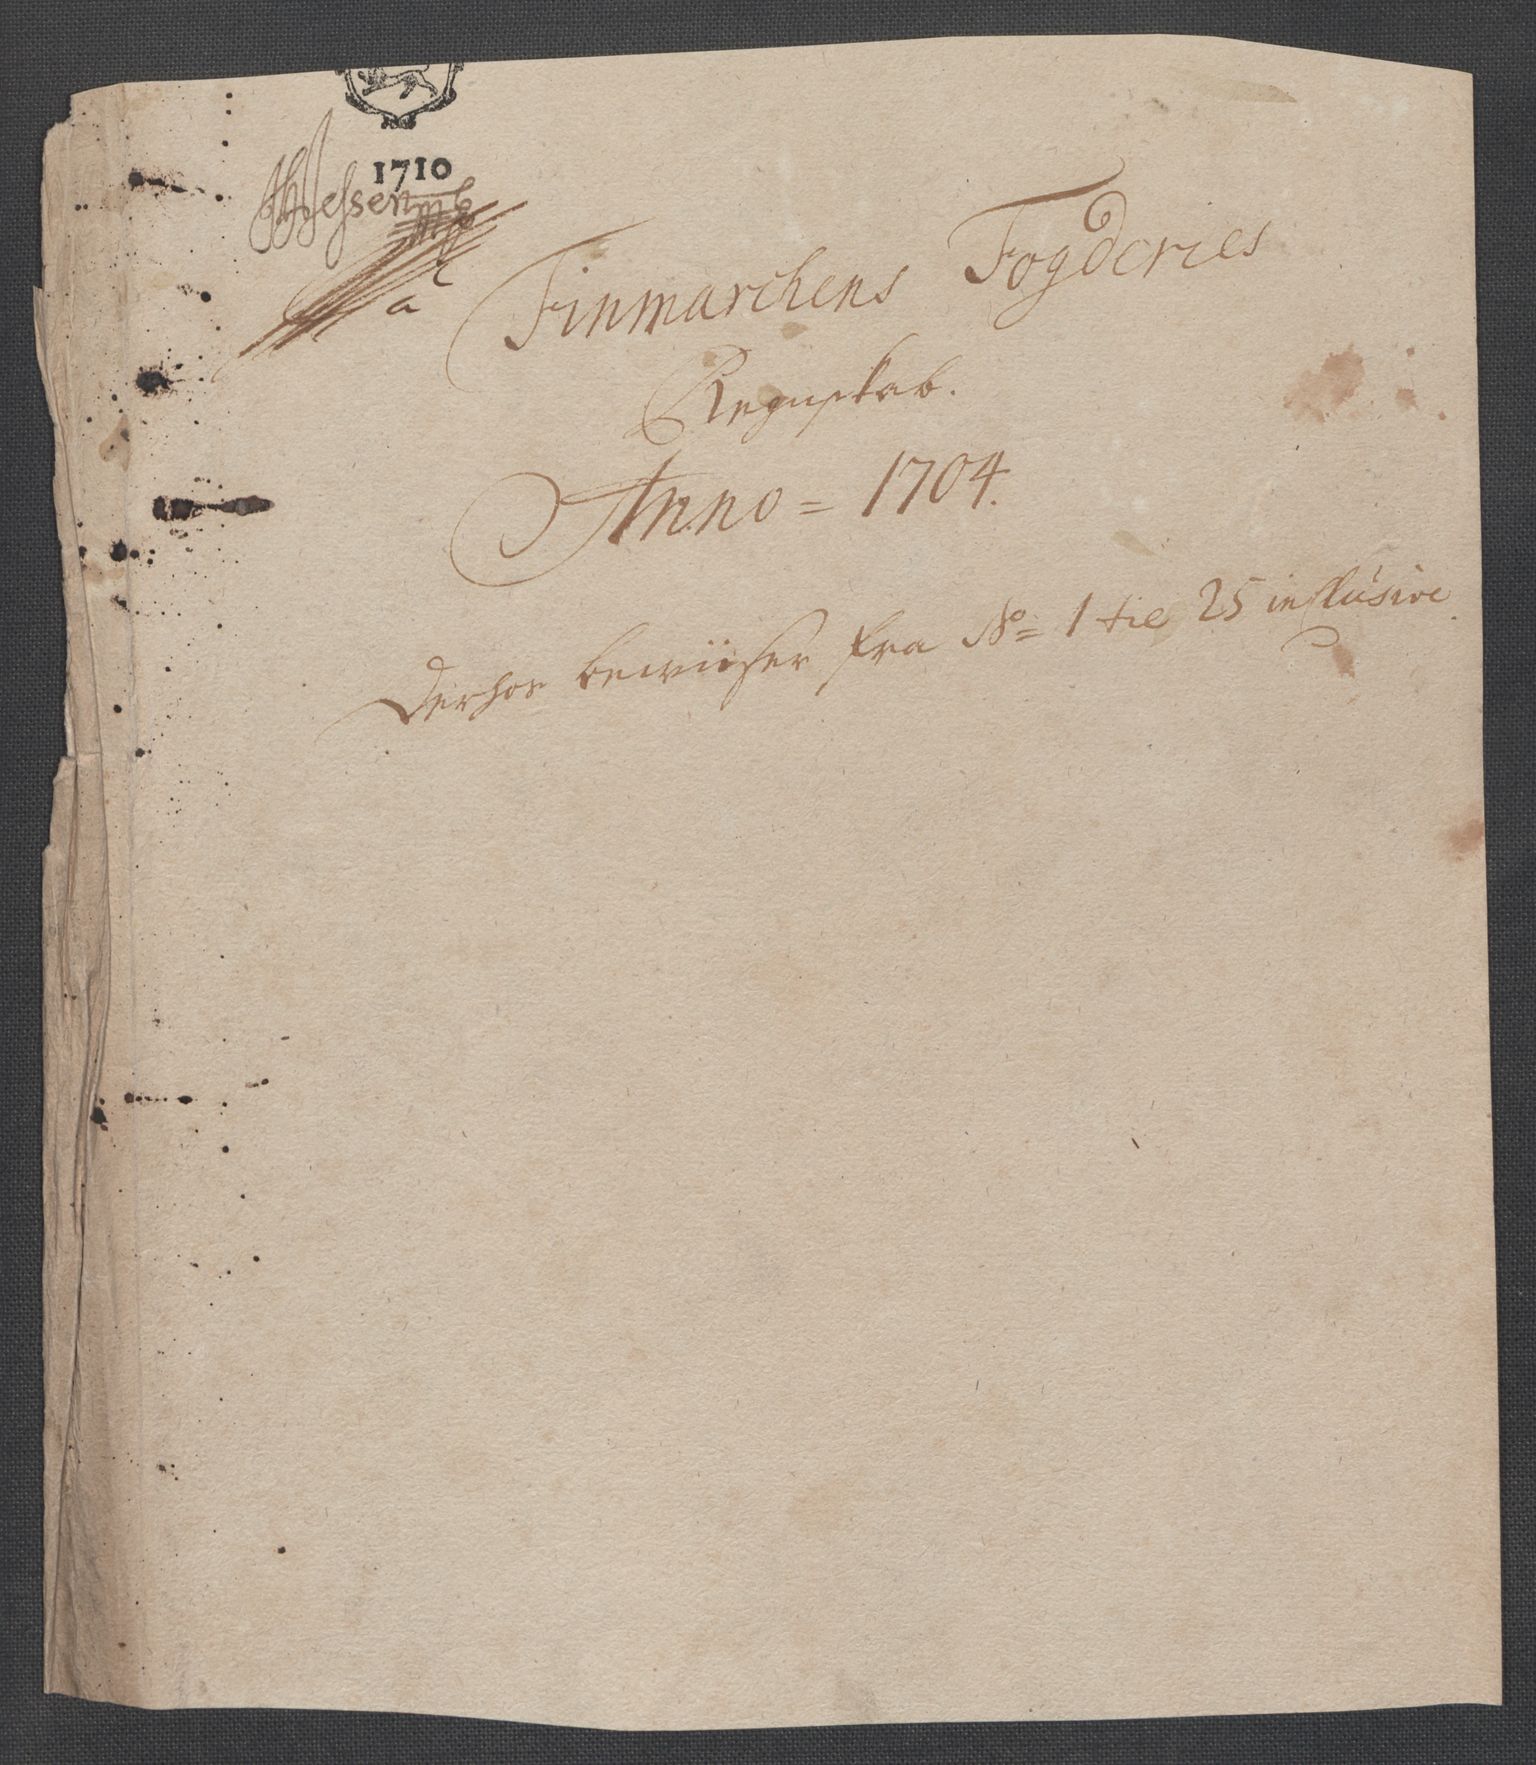 1710
Wessen mp
a
Finmarchens Fogderies
Regnskab.
Anno = 1704.
Derhos bewiiser fra No= 1 til 25 inclusive